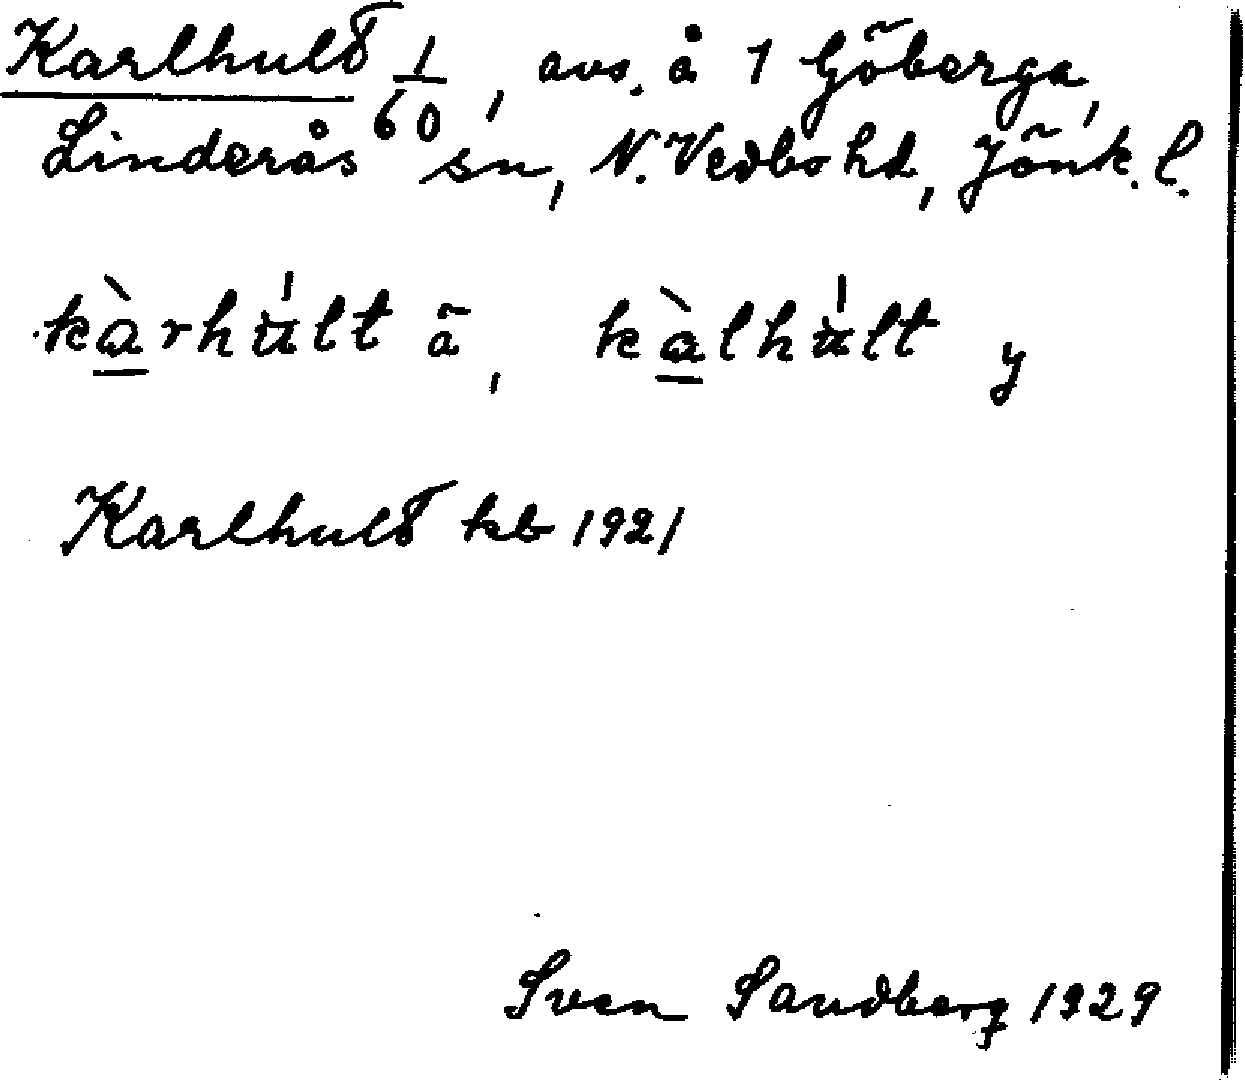 Karlhult 1/60, avs. å 1 Göberga,
Linderås sn, N. Vedbo hd, Jönk. l.
kàrhúlt ä, kàlhúlt y
Karlhult kb 1921
Sven Sandberg 1929